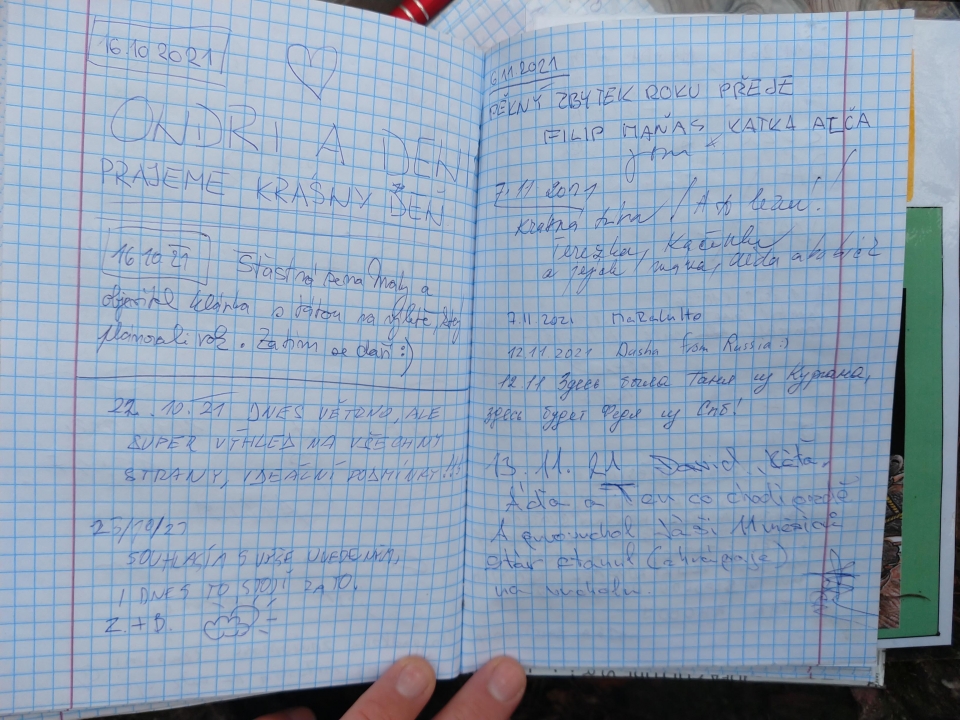 16.10 2021
ONDRI A DEN
PRAJEME KRÁSNY DEŇ
16.10 21 Šťastná
objevitel s tátou na výletě,
plánovali rok. Zatím se daří :)
22.10.21 DNES VĚTRNO, ALE
SUPER VÝHLED NA VŠECHNY
STRANY, IDEÁLNÍ PODMÍNKY!!!
25/10/21
SOUHLASÍM S VÝŠE UVEDENÝM,
I DNES TO STOJÍ ZATO.
Z. + B.
6.11.2021
PĚKNÝ ZBYTEK ROKU PŘEJE
FILIP MAŇAS KATKA
7.11 2021
Krásná túra
Terezka, Kačenka
a jejich máma, děda a babič
7.11.2021
12.11.2021 Dasha from Russia :)
12.11 Здесь была Таня из Кургана,
здесь будет Федя из Спб!
13.11.21 David, Káťa,
Áďa a Ten co chodí pozdě
A
stár
na vrcholu.